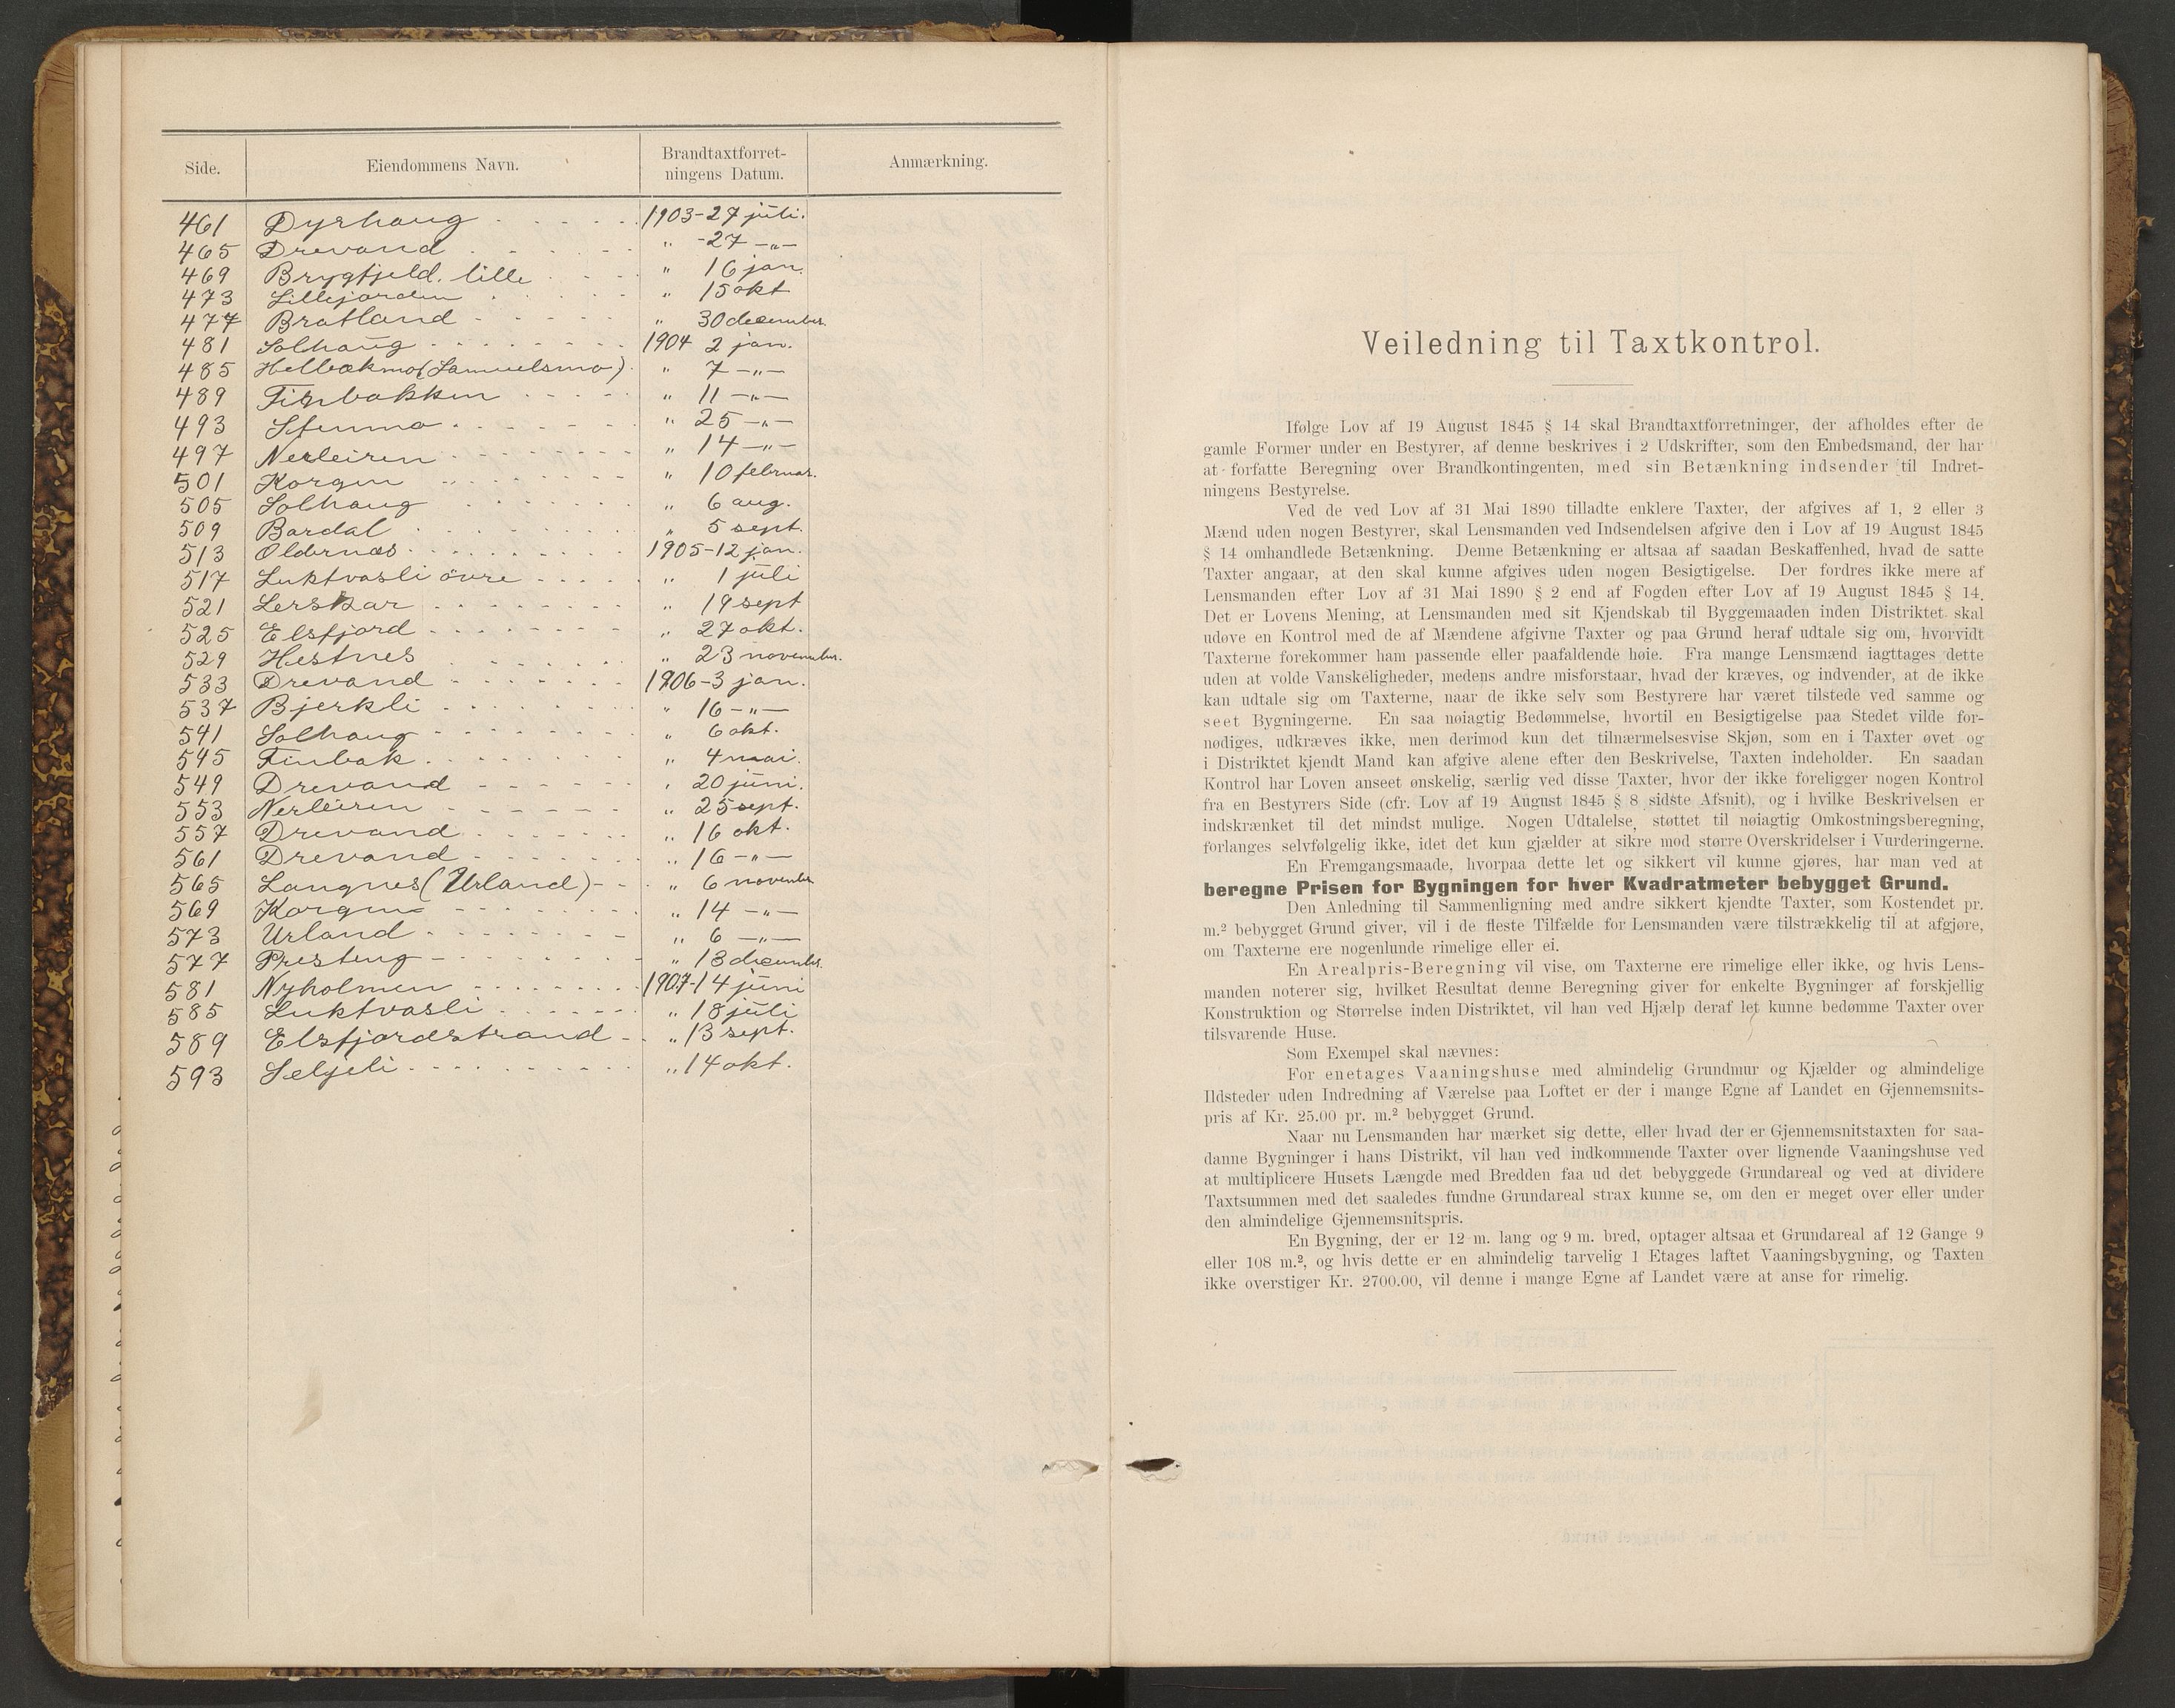 Side. Eiendommens Navn. Brandtaxtforret-
ningens Datum. Anmærkning.
461 Dyrhaug 1903-27 juli.
465 Drevand „ -27 -„-
469 Brygfjeld. lille „ 16 jan.
473 Lillejorden „ 15 okt
477 Bratland „ 30 december.
481 Solhaug 1904 2 jan.
485 Helbækmo (Samuelsmo) „ 7 -„-
489 Finbakken „ 11 -„-
493 Stenmo „ 25 -„-
497 Nerleiren „ 14 -„-
501 Korgen „ 10 februar.
505 Solhaug „ 6 aug.
509 Bardal „ 5 sept.
513 Oldernæs 1905-12 jan.
517 Luktvasli övre „ 1 juli
521 Lerskar „ 19 sept
525 Elsfjord „ 27 okt.
529 Hestnes „ 23 november.
533 Drevand 1906-3 jan.
537 Bjerkli „ 16 -„-
541 Solhaug „ 6 okt.
545 Finbak „ 4 mai.
549 Drevand „ 20 juni.
553 Nerleiren „ 25 sept.
557 Drevand „ 16 okt.
561 Drevand „ 16 -„-
565 Langnes (Urland) „ 6 november
569 Korgen „ 14 -„-
573 Urland „ 6 -„-
577 Presteng „ 13 december.
581 Nyholmen 1907-14 juni
585 Luktvasli „ 18 juli
589 Elsfjordstrand „ 13 sept.
593 Seljeli „ 14 okt.
Veiledning til Taxtkontrol.
Ifølge Lov af 19 August 1845 § 14 skal Brandtaxtforretninger, der afholdes efter de
gamle Former under en Bestyrer, af denne beskrives i 2 Udskrifter, som den Embedsmand, der har
at forfatte Beregning over Brandkontingenten, med sin Betænkning indsender til Indret-
ningens Bestyrelse.
Ved de ved Lov af 31 Mai 1890 tilladte enklere Taxter, der afgives af 1, 2 eller 3
Mænd uden nogen Bestyrer, skal Lensmanden ved Indsendelsen afgive den i Lov af 19 August 1845
§ 14 omhandlede Betænkning. Denne Betænkning er altsaa af saadan Beskaffenhed, hvad de satte
Taxter angaar, at den skal kunne afgives uden nogen Besigtigelse. Der fordres ikke mere af
Lensmanden efter Lov af 31 Mai 1890 § 2 end af Fogden efter Lov af 19 August 1845 § 14.
Det er Lovens Mening, at Lensmanden med sit Kjendskab til Byggemaaden inden Distriktet skal
udøve en Kontrol med de af Mændene afgivne Taxter og paa Grund heraf udtale sig om, hvorvidt
Taxterne forekommer ham passende eller paafaldende høie. Fra mange Lensmænd iagttages dette
uden at volde Vanskeligheder, medens andre misforstaar, hvad der kræves, og indvender, at de ikke
kan udtale sig om Taxterne, naar de ikke selv som Bestyrere har været tilstede ved samme og
seet Bygningerne. En saa nøiagtig Bedømmelse, hvortil en Besigtigelse paa Stedet vilde for-
nødiges, udkræves ikke, men derimod kun det tilnærmelsesvise Skjøn, som en i Taxter øvet og
i Distriktet kjendt Mand kan afgive alene efter den Beskrivelse, Taxten indeholder. En saadan
Kontrol har Loven anseet ønskelig, særlig ved disse Taxter, hvor der ikke foreligger nogen Kontrol
fra en Bestyrers Side (cfr. Lov af 19 August 1845 § 8 sidste Afsnit), og i hvilke Beskrivelsen er
indskrænket til det mindst mulige. Nogen Udtalelse, støttet til nøiagtig Omkostningsberegning,
forlanges selvfølgelig ikke, idet det kun gjælder at sikre mod større Overskridelser i Vurderingerne.
En Fremgangsmaade, hvorpaa dette let og sikkert vil kunne gjøres, har man ved at
beregne Prisen for Bygningen for hver Kvadratmeter bebygget Grund.
Den Anledning til Sammenligning med andre sikkert kjendte Taxter, som Kostendet pr.
m.² bebygget Grund giver, vil i de fleste Tilfælde for Lensmanden være tilstrækkelig til at afgjøre,
om Taxterne ere nogenlunde rimelige eller ei.
En Arealpris-Beregning vil vise, om Taxterne ere rimelige eller ikke, og hvis Lens-
manden noterer sig, hvilket Resultat denne Beregning giver for enkelte Bygninger af forskjellig
Konstruktion og Størrelse inden Distriktet, vil han ved Hjælp deraf let kunne bedømme Taxter over
tilsvarende Huse.
Som Exempel skal nævnes:
For enetages Vaaningshuse med almindelig Grundmur og Kjælder og almindelige
Ildsteder uden Indredning af Værelse paa Loftet er der i mange Egne af Landet en Gjennemsnits-
pris af Kr. 25.00 pr. m.² bebygget Grund.
Naar nu Lensmanden har mærket sig dette, eller hvad der er Gjennemsnitstaxten for saa-
danne Bygninger i hans Distrikt, vil han ved indkommende Taxter over lignende Vaaningshuse ved
at multiplicere Husets Længde med Bredden faa ud det bebyggede Grundareal og ved at dividere
Taxtsummen med det saaledes fundne Grundareal strax kunne se, om den er meget over eller under
den almindelige Gjennemsnitspris.
En Bygning, der er 12 m. lang og 9 m. bred, optager altsaa et Grundareal af 12 Gange 9
eller 108 m.², og hvis dette er en almindelig tarvelig 1 Etages laftet Vaaningsbygning, og Taxten
ikke overstiger Kr. 2700.00, vil denne i mange Egne af Landet være at anse for rimelig.